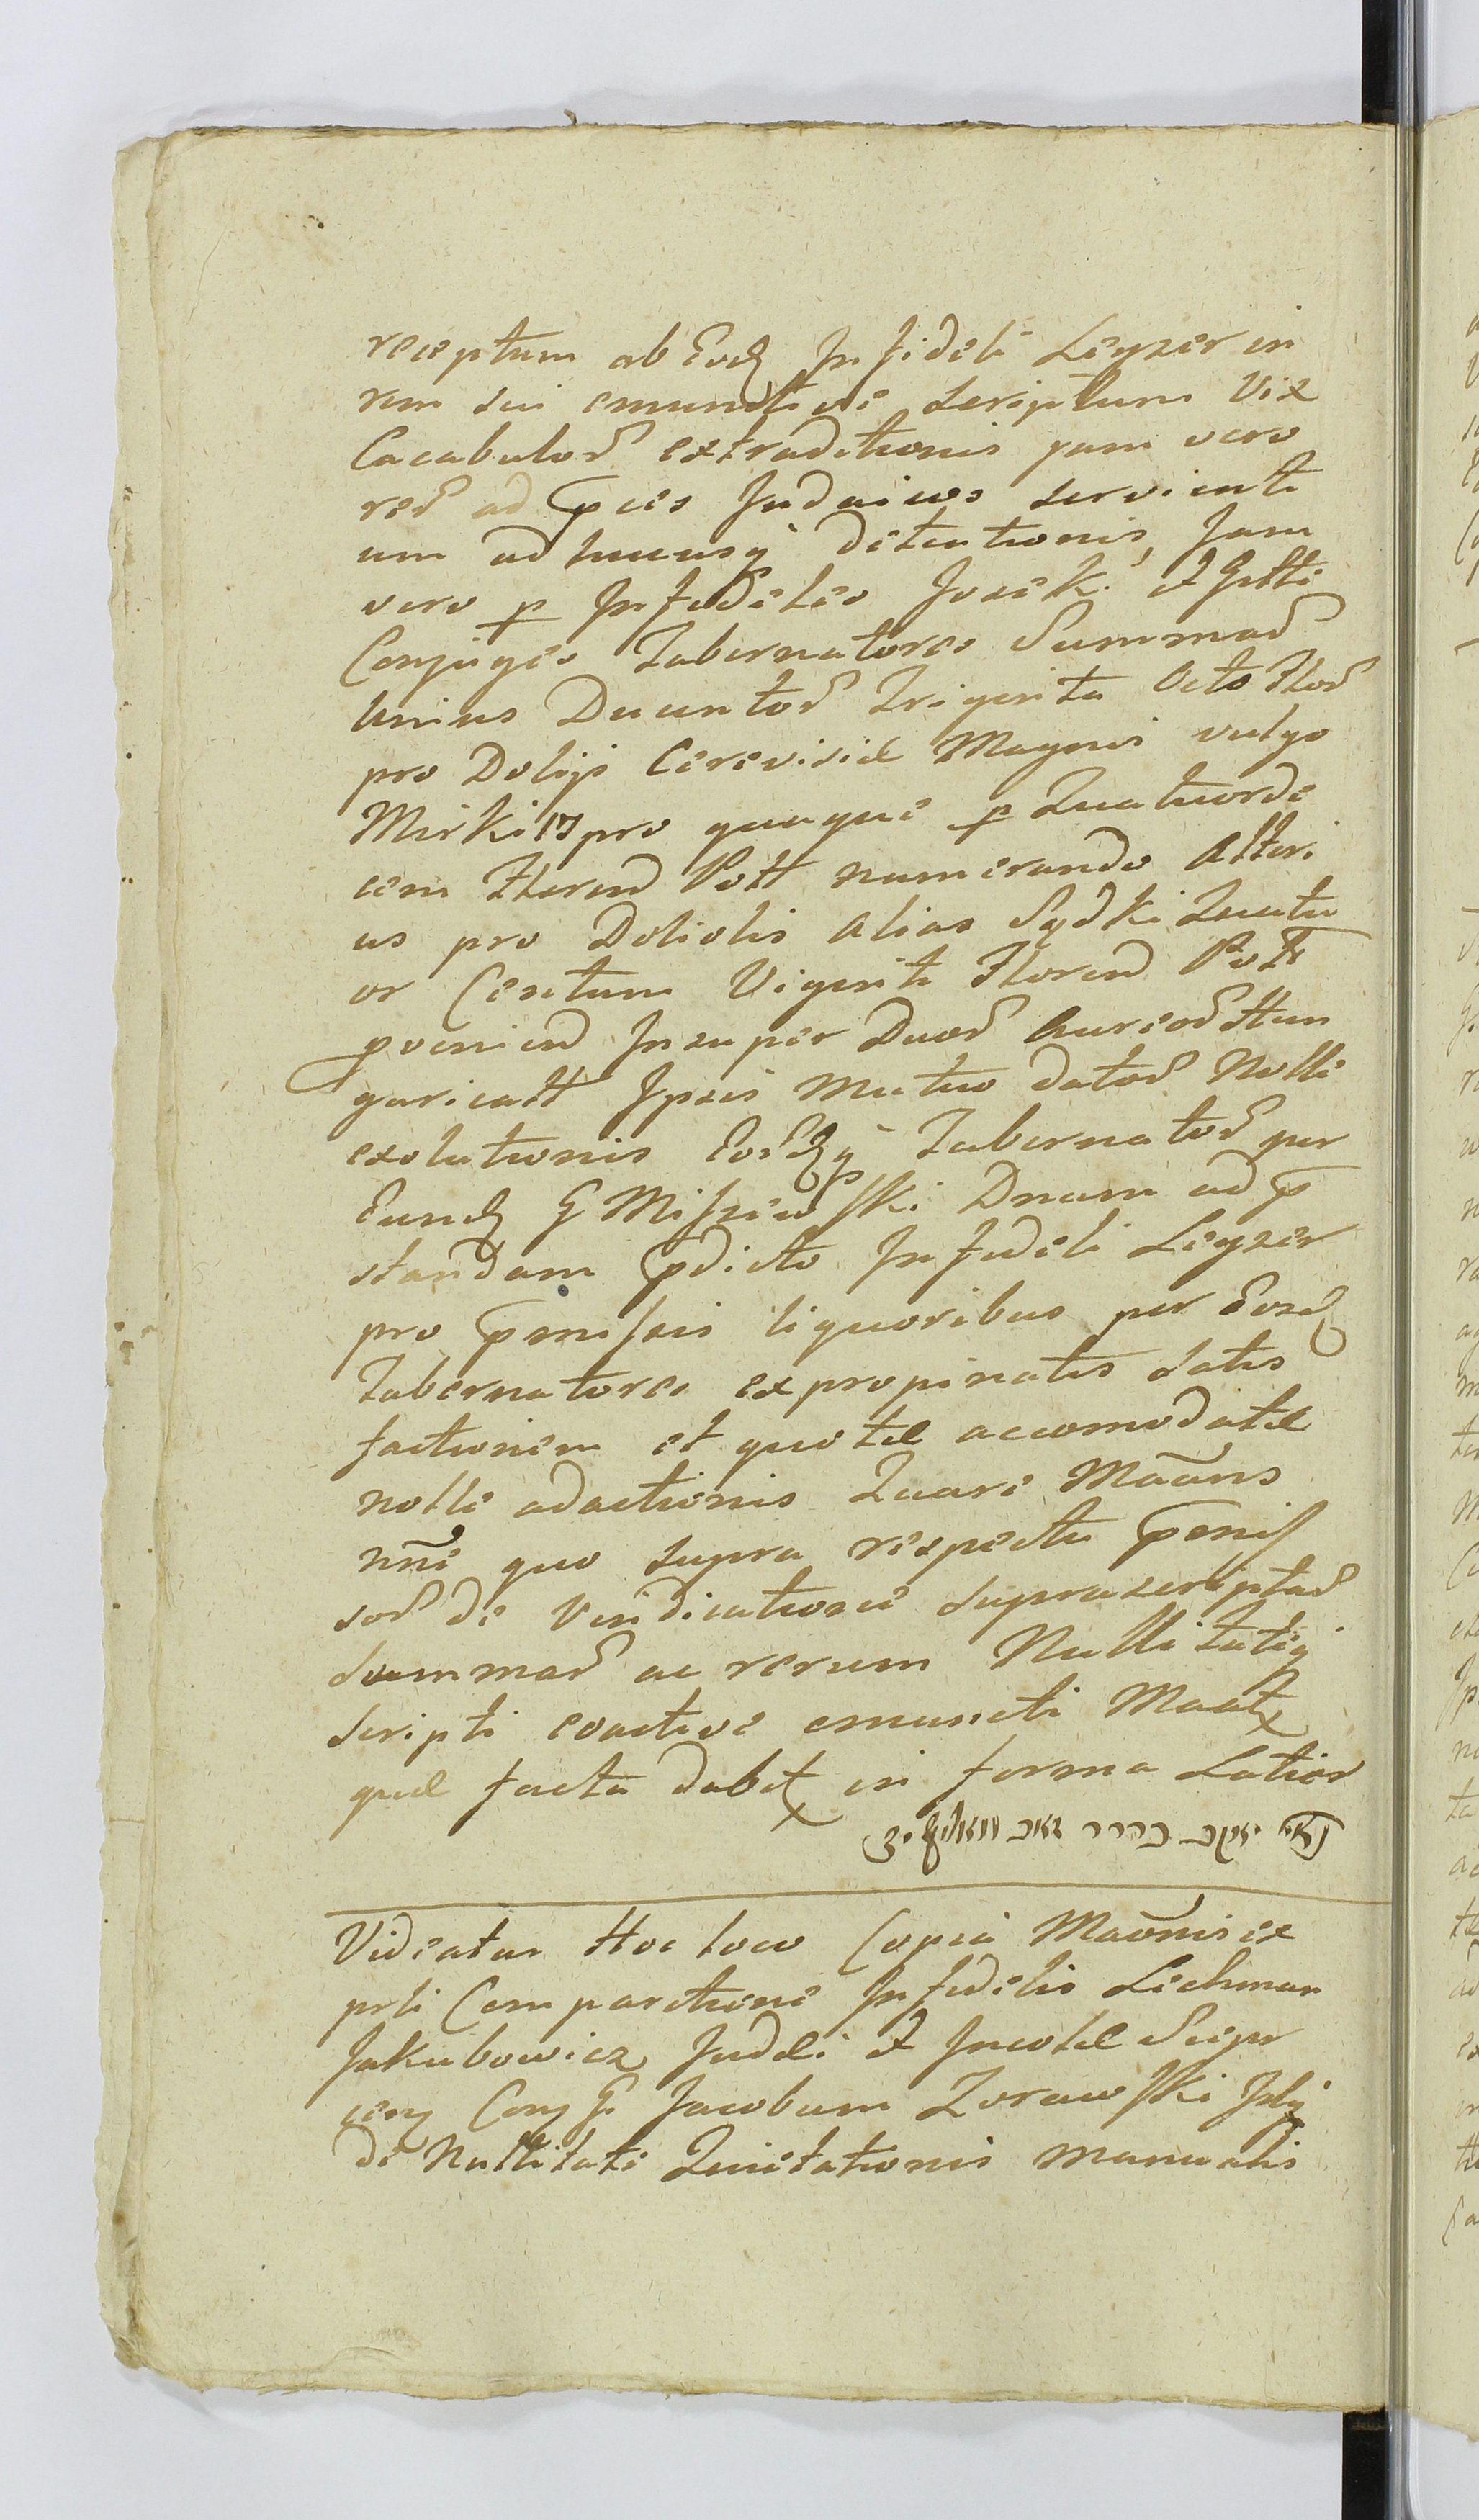 receptum ab Eodz Infideli Leyzer in
rem sui emunctive scriptum Vix
Cacabulor extraditionis jam vero
rer ad pces Judaicos servienti
um ad hucusq detentionis, Jam
vero p Infideles Josek et Gitli
Conjuges Tabernatores Summar
Unius Ducentor Triginta Octo Flor
pro Dolijs Cerevisiæ Magnis vulgo
Mirki 17 pro quaque p Quatuorde
cem Floren Poll numerando Alteri
us pro Doliolis Alias Sydki Quatu
or Centum Viginti Floren Poll
pvenien Insuper Duor Aureor Hun
garicall Ipsis Mutuo dator Nolle
exolutionis Eordzq Tabernator per
Eundz G Miszewski Dnam ad p
standam pdicto Infideli Leyzer
pro pmissis liquoribus per Eosdz
Tabernatores expropinatis satis
factionem et quotæ accomodatæ
nolle adactionis Quare Mãans
nñe quo supra respectu pmis
sor de Vindicatione suprascriptar
summar ac rerum Nullitateq
scripti coactive emuncti Maat
quæ facta dabit in forma Latior

Videatur Hoc loco Copia Maõnis ex
prti Comparitione Infidelis Lechman
Jakubowicz Judæi et Incolæ Sierp
cen Con G Jacobum Zorawski
de Nullitate Quietationis manualis